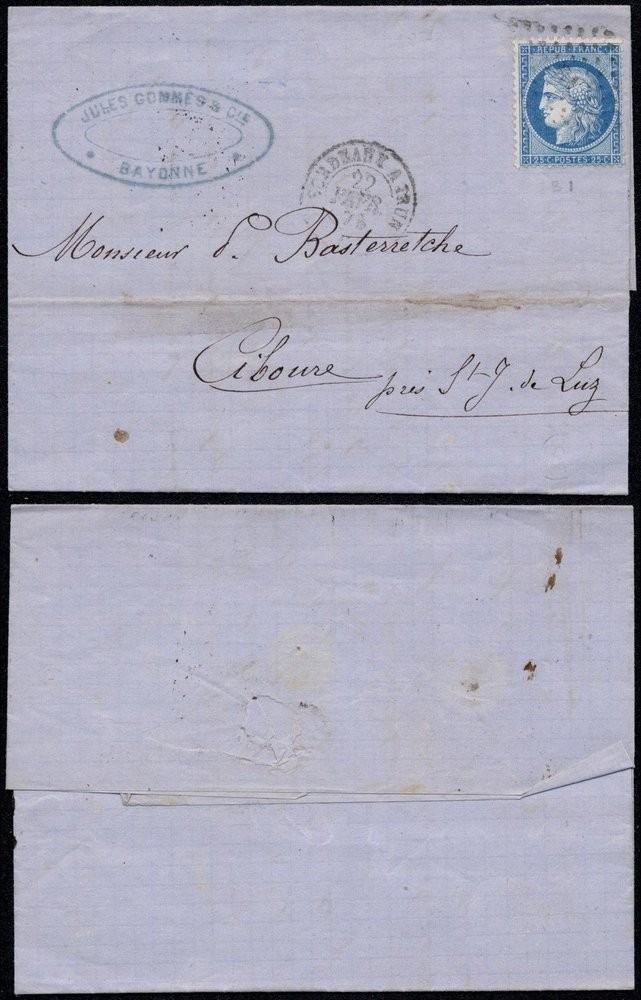 REPUB. FRANC.
25 C. POSTES 25 C.
B 1
JULES GOMMÈS & CIE
BAYONNE
BORDEAUX A IRUN
22
FEVR.
74
Monsieur P. Basterretche
Ciboure
près St J. de Luz